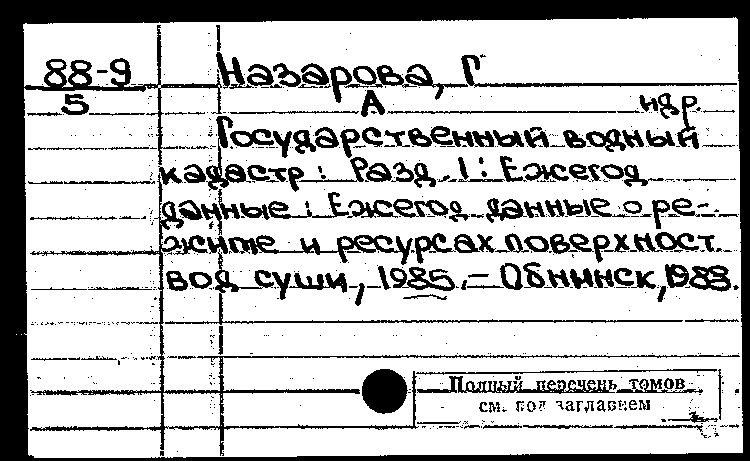 88-9 Назарова, Г
5 А ндр.
Государственный водный
кадастр: Разд. 1: Ежегод
данные: Ежегод данные о ре-
жиме и ресурсах поверхност.
вод суши, 1985. – Обнинск, 1988.
Полный перечень томов
см. под заглавием